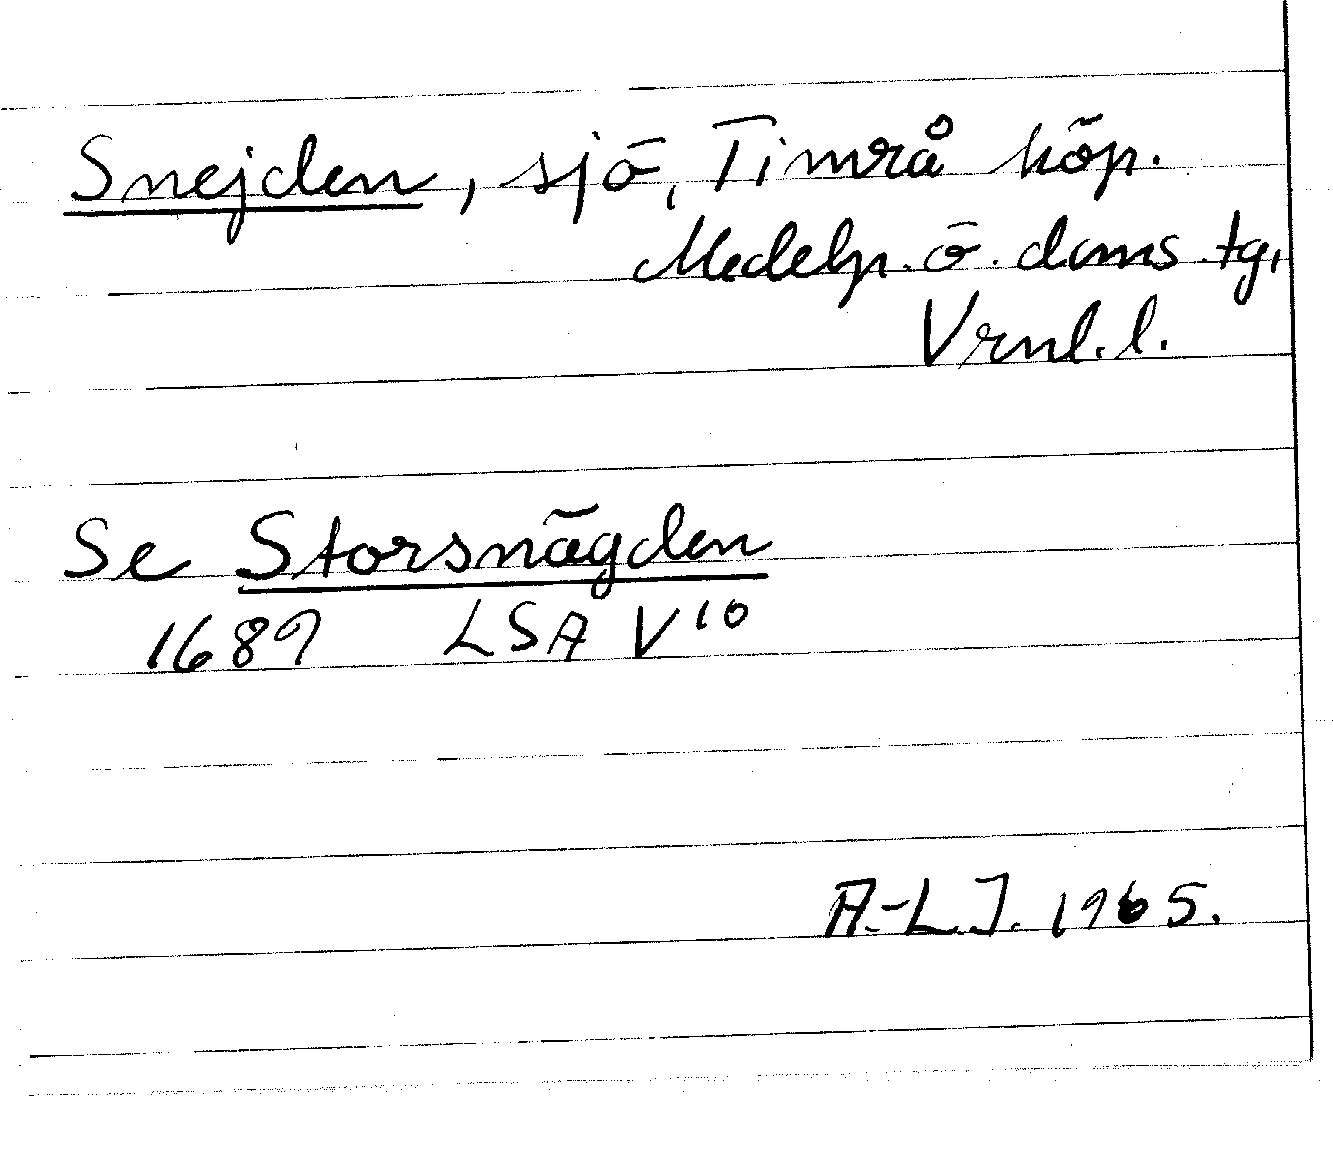 Snejden, sjö, Timrå köp.
Medelp. ö. doms. tg,
Vrnl. l.
Se Storsnägden
1689 LSA V 10
A.-L. J. 1965.